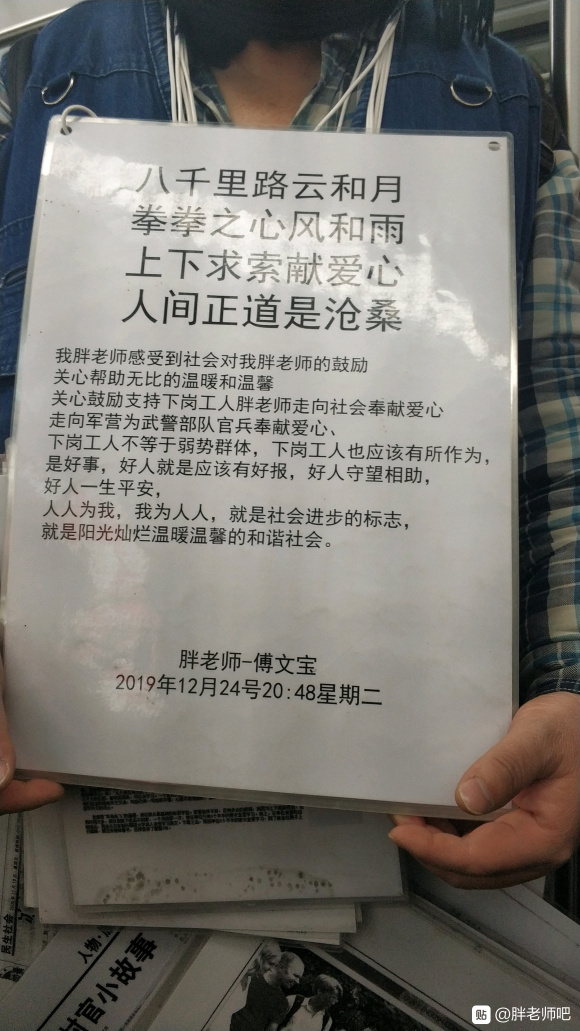 八千里路云和月
拳拳之心风和雨
上下求索献爱心
人间正道是沧桑
我胖老师感受到社会对我胖老师的鼓励
关心帮助无比的温暖和温馨
关心鼓励支持下岗工人胖老师走向社会奉献爱心
走向军营为武警部队官兵奉献爱心、
下岗工人不等于弱势群体，下岗工人也应该有所作为，
是好事，好人就是应该有好报，好人守望相助，
好人一生平安，
人人为我，我为人人，就是社会进步的标志，
就是阳光灿烂温暖温馨的和谐社会。
胖老师-傅文宝
2019年12月24号20:48星期二
民生社会
人物·
村官小故事
贴 @胖老师吧